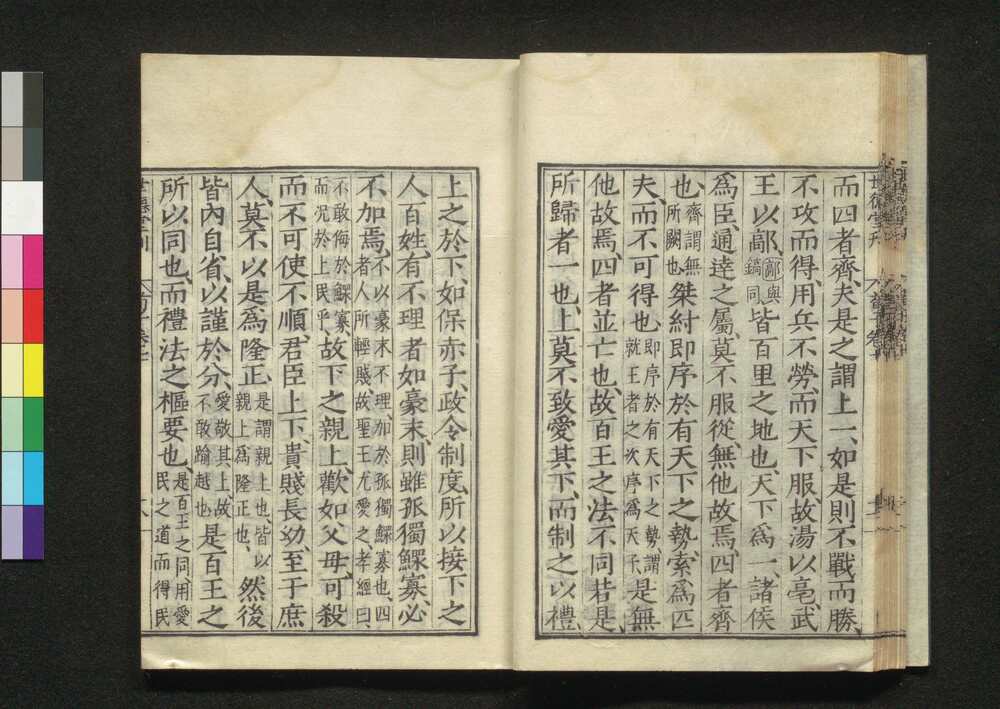 而四者齊、夫是之謂上一、如是則不戰而勝、
不攻而得、用兵不勞、而天下服、故湯以亳、武
王以鄗、鄗與鎬同、皆百里之地也、天下為一、諸侯
為臣、通達之屬、莫不服從、無他故焉、四者齊
也、齊謂無所闕也桀紂即序於有天下之埶、索為匹
夫、而不可得也、即序於有天下之勢、謂就王者之次序為天子、是無
他故焉、四者並亡也、故百王之法不同若是、
所歸者一也、上莫不致愛其下、而制之以禮、
上之於下、如保赤子、政令制度、所以接下之
人百姓、有不理者如豪末、則雖孤獨鰥寡必
不加焉、不以豪末不理、加於孤獨鰥寡也、四者人所輕賤、故聖王尤愛之、孝經曰、
不敢侮於鰥寡、而况於上民乎、故下之親上歡如父母、可殺
而不可使不順、君臣上下、貴賤長幼、至于庶
人、莫不以是為隆正、是謂親上也、皆以親上為隆正也、然後
皆內自省、以謹於分、愛敬其上、故不敢踰越也、是百王之
所以同也、而禮法之樞要也、是百王之同、用愛民之道而得民